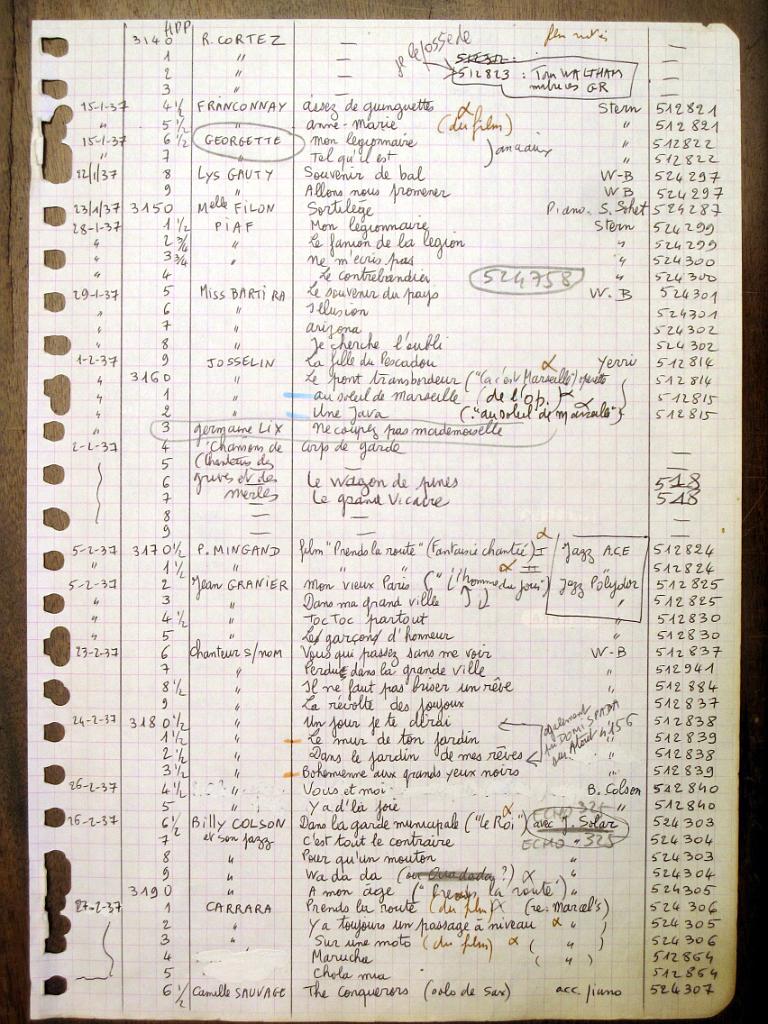 HDP
3140 R. CORTEZ — film notés —
1 " — je le possède 51232: —
2 " — 512823 : Tom WALTHAM —
3 " — matrices GR —
15-1-37 4 1/2 FRANCONNAY assez de guinguettes α Stern 512821
" 5 1/2 " anne-marie (du film) " 512821
15-1-37 6 1/2 GEORGETTE mon legionnaire 512822
" 7 " Tel qu'il est " 512822
22/1/37 8 LYS GAUTY Souvenir de bal W-B 524297
9 " Allons nous promener W B 524297
23/1/37 3150 Melle FILON Sortilège Piano. S. Sohet 524287
28-1-37 1 1/2 PIAF Mon legionnaire Stern 524299
" 2 3/4 " Le fanion de la legion " 524299
" 3 3/4 " ne m'ecris pas 524300
" 4 Le contrebandier 524758 " 524300
29-1-37 5 Miss BARTIRA Le souvenir du pays W.B 524301
6 " Illusion 524301
7 " arizona " 524302
8 " Je cherche l'oubli " 524302
1-2-37 9 JOSSELIN La fille du Pescadou α Yerri 512814
" 3160 " Le pont transbordeur ("Ca c'est Marseille") 512814
" 1 " au soleil de Marseille (de l'op.) α 512815
" 2 " Une Java ("au soleil de marseille") 512815
" 3 germaine LIX Ne coupez pas mademoiselle
2-2-37 4 Chansons de corps de garde —
5 (Chanteurs des — —
6 grives et des Le wagon de pines 518
7 merles Le grand Vicaire 518
8 — — —
9 — — —
5-2-37 3170 1/2 P. MINGAND film "Prends la route" (Fantaisie chantée) I α Jazz ACE 512824
" 1 1/2 " " " " II α " 512824
5-2-37 2 Jean GRANIER mon vieux Paris ("l'homme du jour") Jazz Polydor 512825
" 3 " Dans ma grand ville " 512825
" 4 1/2 " Toc Toc partout 512830
" 5 " Les garçons d'honneur " 512830
23-2-37 6 Chanteur s/nom Vous qui passez sans me voir W-B 512837
7 " Perdue dans la grande ville 512941
8 1/2 " Il ne faut pas briser un rêve 512884
9 " La révolte des joujoux 512837
24-2-37 3180 1/2 " Un jour je te dirai également 512838
1 1/2 " Le mur de ton jardin par DOMI SPADA 512839
2 1/2 " Dans le jardin de mes rêves sur Atout 4156 512838
3 1/2 " Bohemienne aux grands yeux noirs 512839
26-2-37 4 1/2 " Vous et moi B. Colson 512840
5 " Y a d'la joie " 512840
26-2-37 6 1/2 Billy COLSON Dans la garde municipale ("le Roi") α avec J. Solar ECHO 325 524303
7 et son jazz c'est tout le contraire ECHO " 325 524304
8 " Pour qu'un mouton " 524303
9 " Wa da da (ou Ouadada ?) α " 524304
3190 " A mon âge ("Prends la route") " 524305
27-2-37 1 CARRARA Prends la route (du film) α (re: Marcel's) 524306
2 " Y a toujours un passage à niveau α " 524305
3 " Sur une moto (du film) α ( " ) 524306
4 Marucha ( " ) 512864
5 Chola mia 512864
6 1/2 Camille SAUVAGE The Conquerors (solo de sax) acc. piano 524307